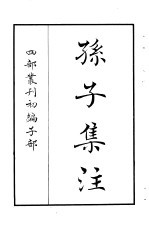 孫子集注
四部叢刊初編子部